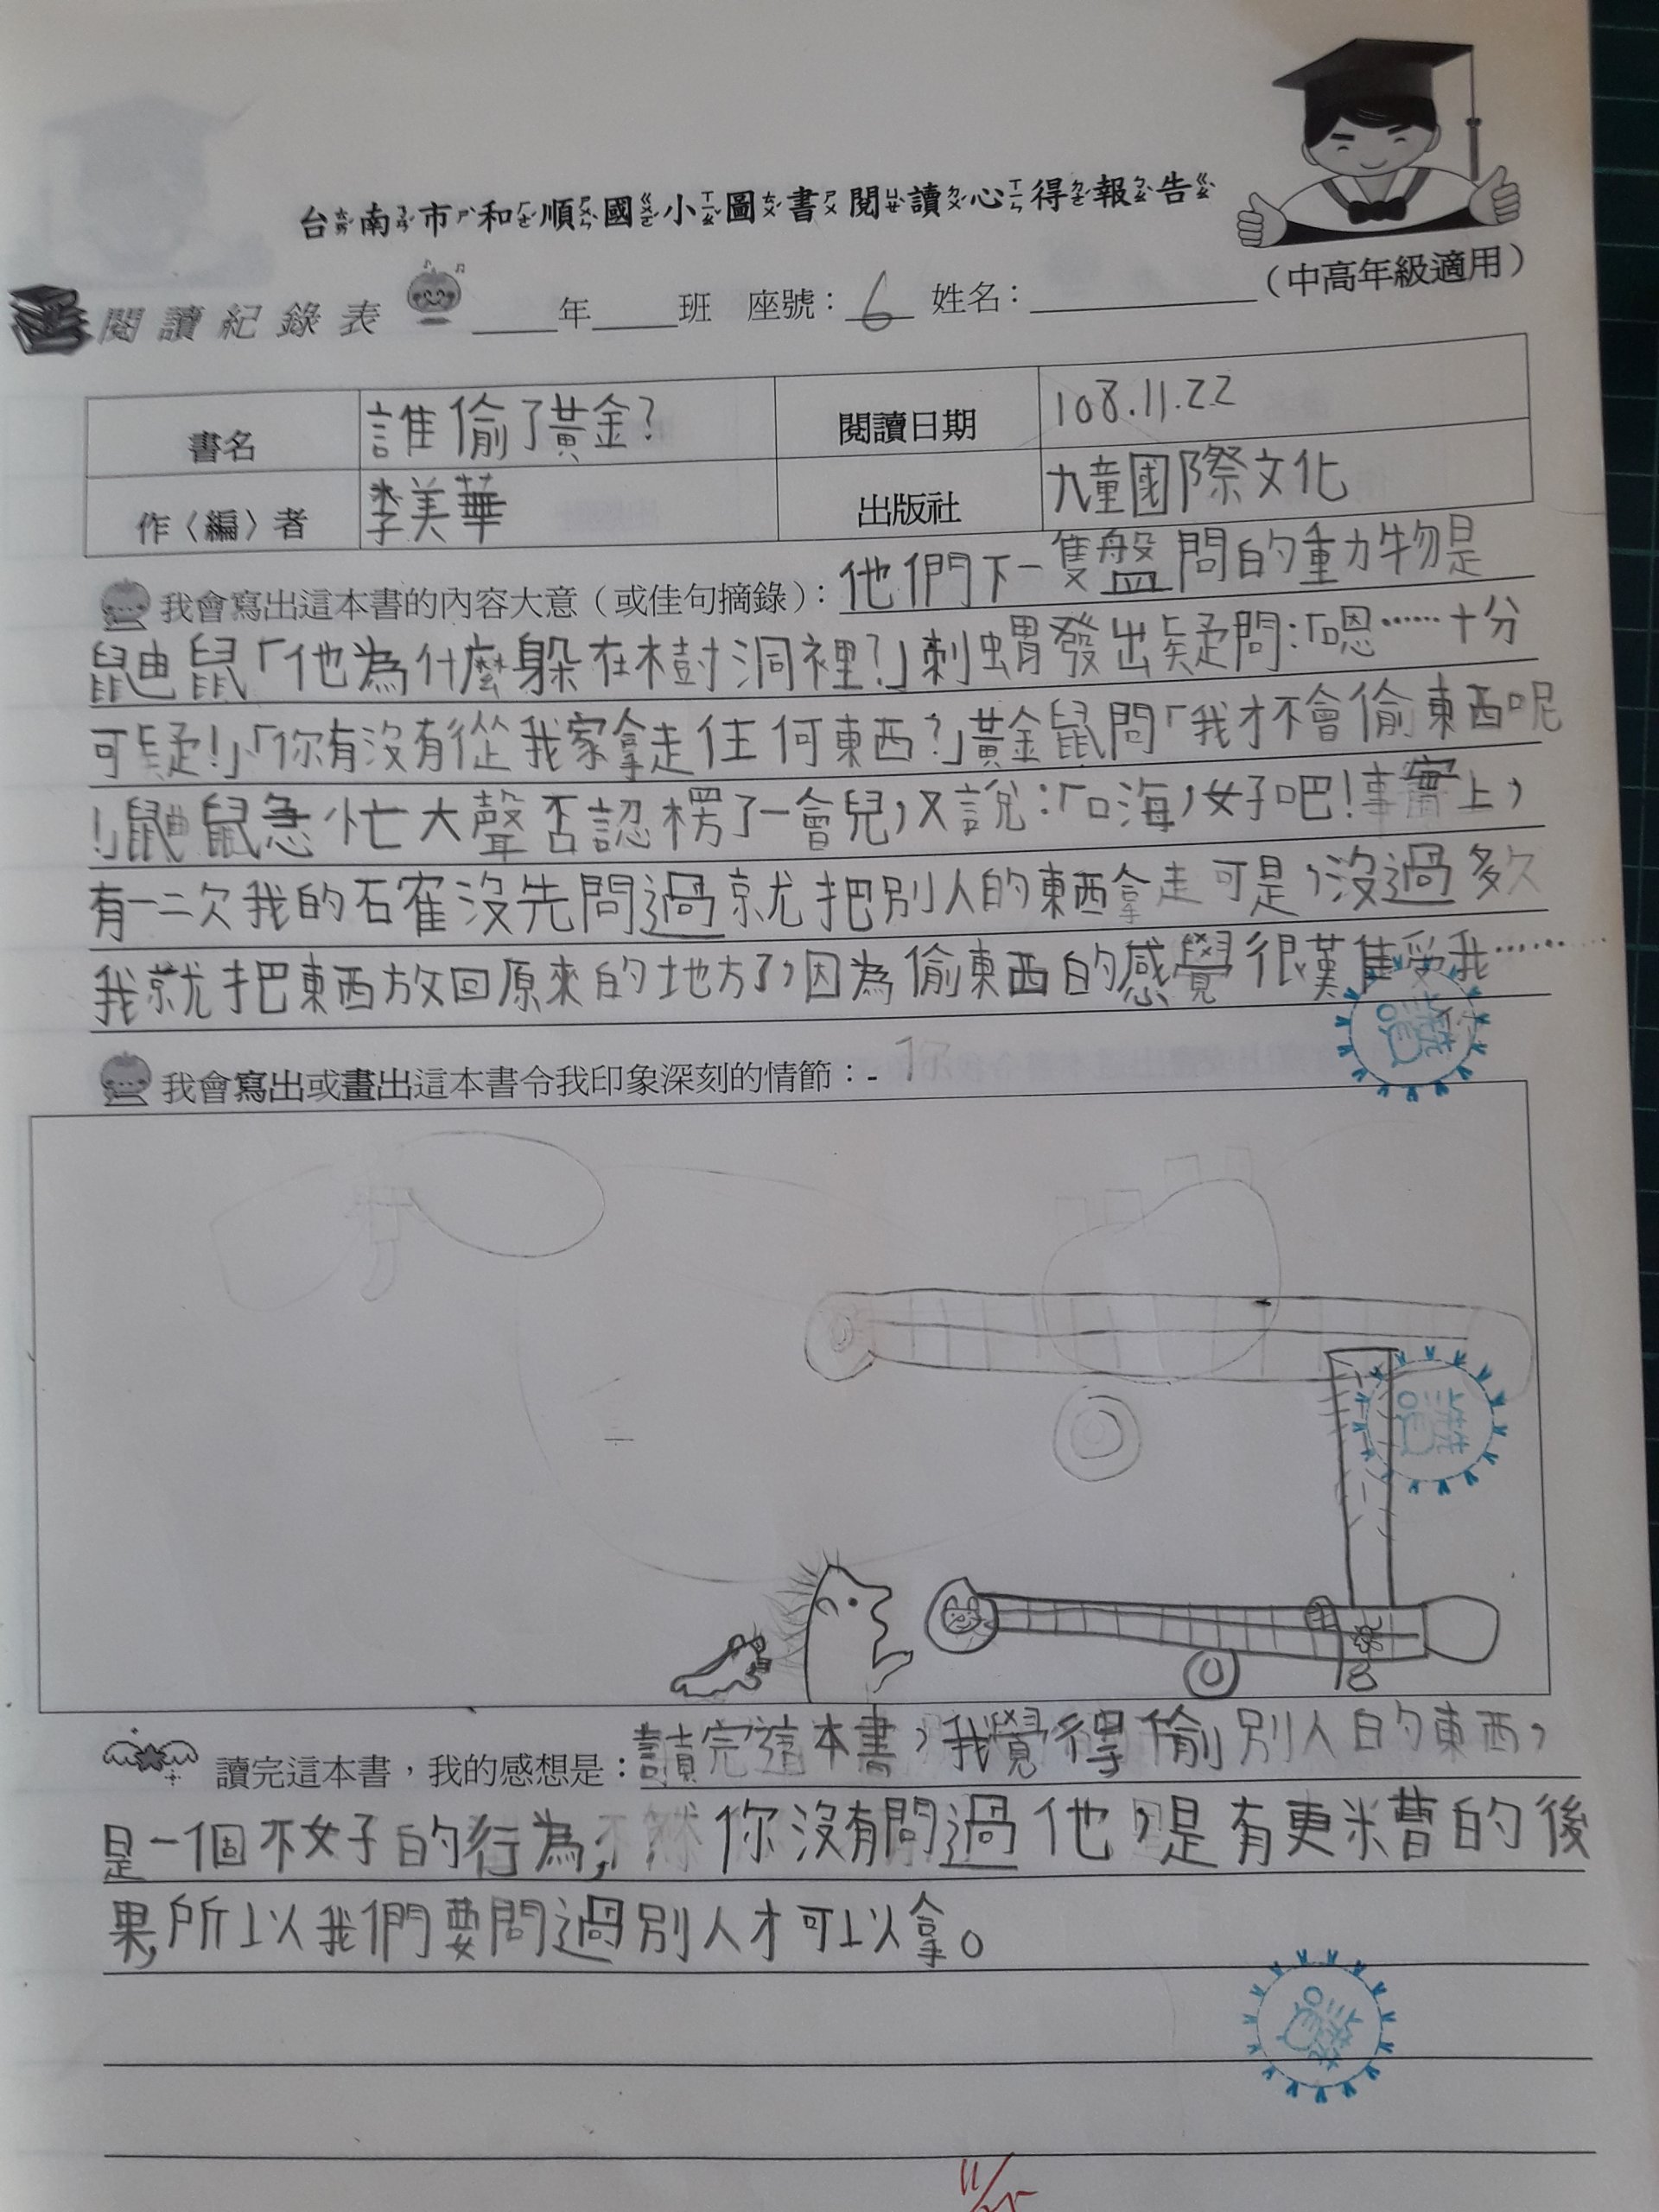 台南市和順國小圖書閱讀心得報告
(中高年級適用)
閱讀紀錄表 ____年____班 座號：6 姓名：________
書名 誰偷了黃金? 閱讀日期 108.11.22
作〈編〉者 李美華 出版社 九童國際文化
我會寫出這本書的內容大意（或佳句摘錄）：他們下一隻盤問的動物是
鼬鼠「他為什麼躲在樹洞裡?」刺蝟發出疑問:「嗯……十分
可疑!」「你有沒有從我家拿走任何東西?」黃金鼠問「我才不會偷東西呢
!」鼬鼠急忙大聲否認楞了一會兒,又說:「口海,好吧!事實上,
有一二次我的確沒先問過就把別人的東西拿走可是,沒過多久
我就把東西放回原來的地方了,因為偷東西的感覺很難受我……
我會寫出或畫出這本書令我印象深刻的情節：
讀完這本書，我的感想是：讀完這本書,我覺得偷別人的東西,
是一個不好的行為,你沒有問過他,是有更糟的後
果,所以我們要問過別人才可以拿。